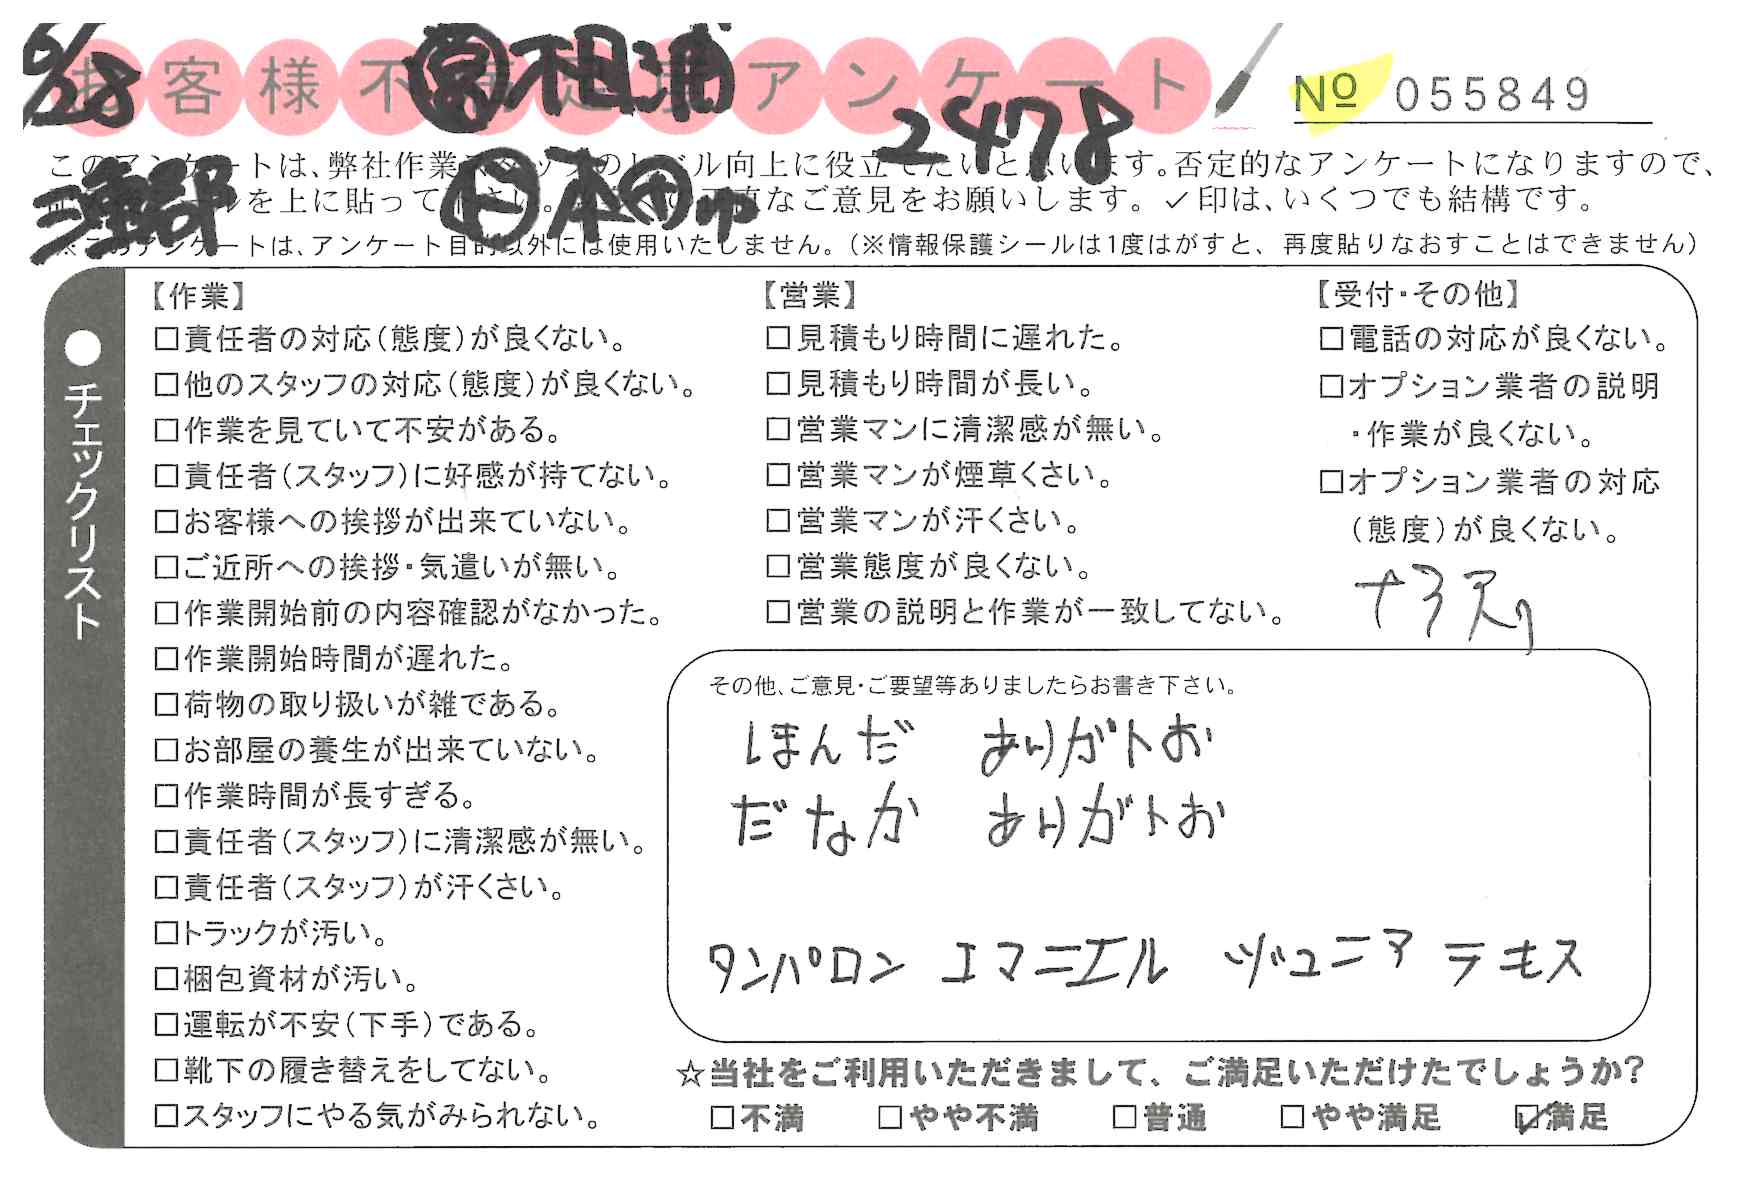 6/28
お客様不満足度アンケート
㊂相浦
2478
№ 055849
このアンケートは、弊社作業スタッフのレベル向上に役立てたいと思います。否定的なアンケートになりますので、
シールを上に貼って下さい。正直なご意見をお願いします。✓印は、いくつでも結構です。
※このアンケートは、アンケート目的以外には使用いたしません。(※情報保護シールは1度はがすと、再度貼りなおすことはできません)
●チェックリスト
【作業】
□責任者の対応(態度)が良くない。
□他のスタッフの対応(態度)が良くない。
□作業を見ていて不安がある。
□責任者(スタッフ)に好感が持てない。
□お客様への挨拶が出来ていない。
□ご近所への挨拶・気遣いが無い。
□作業開始前の内容確認がなかった。
□作業開始時間が遅れた。
□荷物の取り扱いが雑である。
□お部屋の養生が出来ていない。
□作業時間が長すぎる。
□責任者(スタッフ)に清潔感が無い。
□責任者(スタッフ)が汗くさい。
□トラックが汚い。
□梱包資材が汚い。
□運転が不安(下手)である。
□靴下の履き替えをしてない。
□スタッフにやる気がみられない。
【営業】
□見積もり時間に遅れた。
□見積もり時間が長い。
□営業マンに清潔感が無い。
□営業マンが煙草くさい。
□営業マンが汗くさい。
□営業態度が良くない。
□営業の説明と作業が一致してない。
【受付・その他】
□電話の対応が良くない。
□オプション業者の説明
・作業が良くない。
□オプション業者の対応
(態度)が良くない。
その他、ご意見・ご要望等ありましたらお書き下さい。
ほんだ ありがトお
だなか ありがトお
タンパロン エマニエル ヅュニア ラモス
☆当社をご利用いただきまして、ご満足いただけたでしょうか?
□不満 □やや不満 □普通 □やや満足 ☑満足